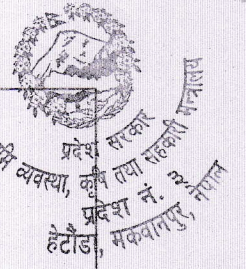 प्रदेश सरकार
व्यवस्था, कृषि तथा सहकारी मन्त्रालय
प्रदेश नं. ३
हेटौंडा, मकवानपुर, नेपाल